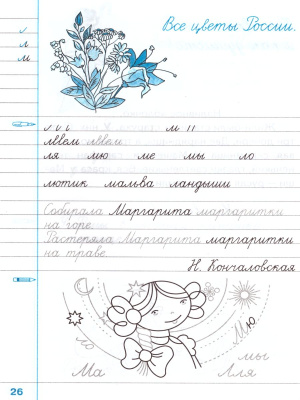 Все цветы России.
л
м
м
лвем лвем
ля мю ме мы ло
лютик мальва ландыши
Собирала Маргарита маргаритки
на горе.
Растеряла Маргарита маргаритки
на траве.
Н. Кончаловская
Мю
ло
мы
Ма
Аля
26